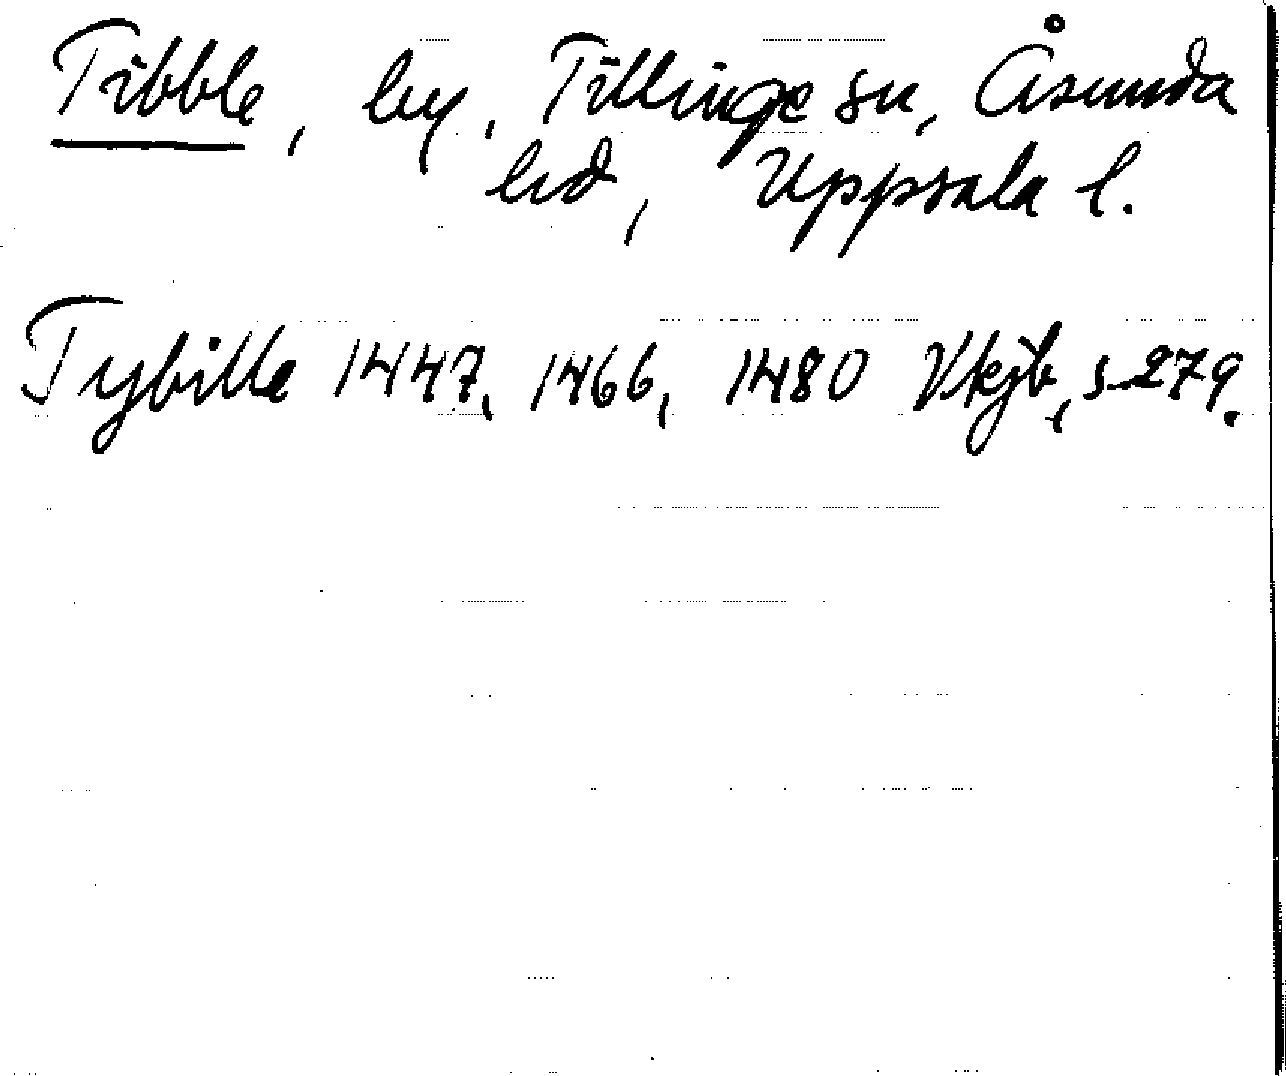 Tibble, by, Tillinge sn, Åsunda
hd, Uppsala l.
Tybille 1447, 1466, 1480 Vkjb, s 279.